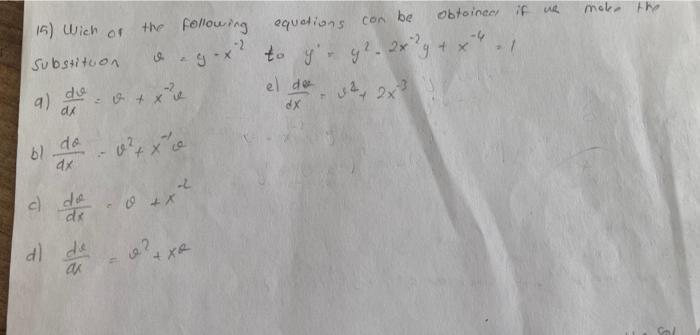 15) Wich of the following equations can be obtained if we make the
Substituon v = y - x^-2 to y' = y^2 - 2x^-2y + x^-4 = 1
a) dv/dx = v + x^-2v
e) dv/dx = v^2 + 2x^-3
b) dv/dx = v^2 + x^-1v
c) dv/dx = v + x^-2
d) dv/dx = v^2 + xv